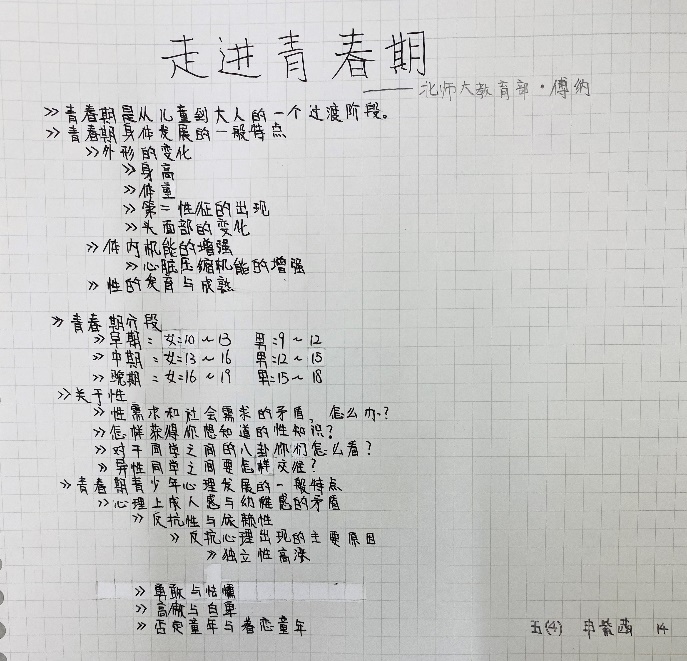 走进青春期
——北师大教育部·傅纳
>> 青春期是从儿童到大人的一个过渡阶段。
>> 青春期身体发展的一般特点
>> 外形的变化
>> 身高
>> 体重
>> 第二性征的出现
>> 头面部的变化
>> 体内机能的增强
>> 心脏压缩机能的增强
>> 性的发育与成熟
>> 青春期分段
>> 早期:女:10~13 男:9~12
>> 中期:女:13~16 男:12~15
>> 晚期:女:16~19 男:15~18
>> 关于性
>> 性需求和社会需求的矛盾,怎么办?
>> 怎样获得你想知道的性知识?
>> 对于同学之间的八卦你们怎么看?
>> 异性同学之间要怎样交往?
>> 青春期青少年心理发展的一般特点
>> 心理上成人感与幼稚感的矛盾
>> 反抗性与依赖性
>> 反抗心理出现的主要原因
>> 独立性高涨
>> 勇敢与怯懦
>> 高傲与自卑
>> 否定童年与眷恋童年
五(4) 14